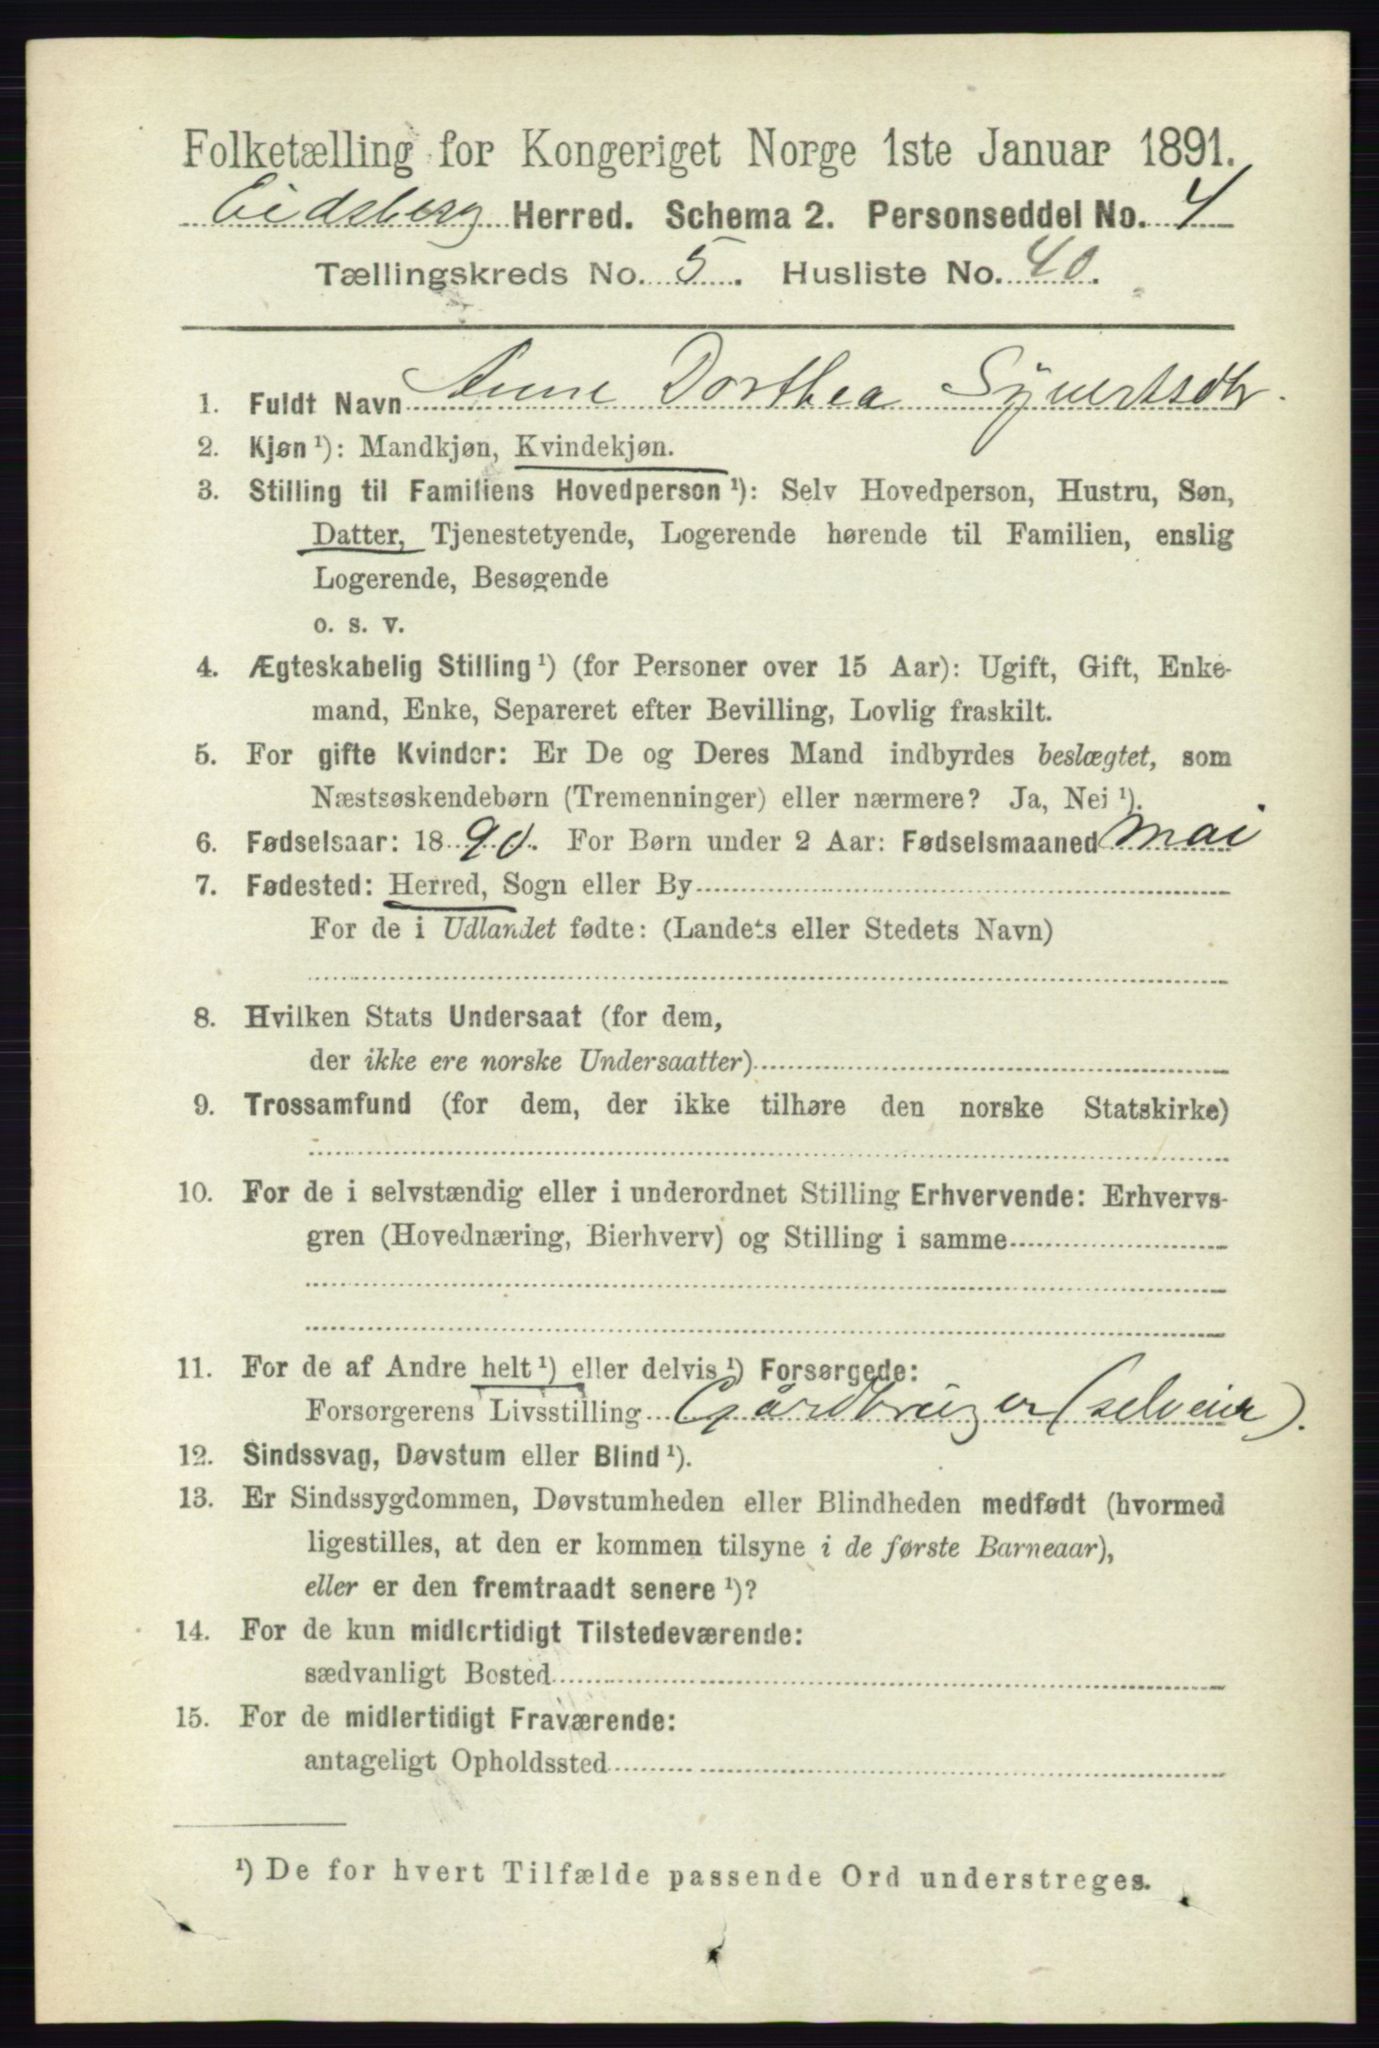 Folketælling for Kongeriget Norge 1ste Januar 1891.
Eidsberg Herred. Schema 2. Personseddel No. 4
Tællingskreds No. 5. Husliste No. 40.
1. Fuldt Navn Anne Dorthea Syvertsdtr.
2. Kjøn ¹): Mandkjøn, Kvindekjøn.
3. Stilling til Familiens Hovedperson ¹): Selv Hovedperson, Hustru, Søn,
Datter, Tjenestetyende, Logerende hørende til Familien, enslig
Logerende, Besøgende
o. s. v.
4. Ægteskabelig Stilling ¹) (for Personer over 15 Aar): Ugift, Gift, Enke-
mand, Enke, Separeret efter Bevilling, Lovlig fraskilt.
5. For gifte Kvinder: Er De og Deres Mand indbyrdes beslægtet, som
Næstsøskendebørn (Tremenninger) eller nærmere? Ja, Nei ¹).
6. Fødselsaar: 1890. For Børn under 2 Aar: Fødselsmaaned Mai
7. Fødested: Herred, Sogn eller By
For de i Udlandet fødte: (Landets eller Stedets Navn)
8. Hvilken Stats Undersaat (for dem,
der ikke ere norske Undersaatter)
9. Trossamfund (for dem, der ikke tilhøre den norske Statskirke)
10. For de i selvstændig eller i underordnet Stilling Erhvervende: Erhvervs-
gren (Hovednæring, Bierhverv) og Stilling i samme
11. For de af Andre helt ¹) eller delvis ¹) Forsørgede:
Forsørgerens Livsstilling Gårdbruger (selveier).
12. Sindssvag, Døvstum eller Blind ¹).
13. Er Sindssygdommen, Døvstumheden eller Blindheden medfødt (hvormed
ligestilles, at den er kommen tilsyne i de første Barneaar),
eller er den fremtraadt senere ¹)?
14. For de kun midlertidigt Tilstedeværende:
sædvanligt Bosted
15. For de midlertidigt Fraværende:
antageligt Opholdssted
¹) De for hvert Tilfælde passende Ord understreges.